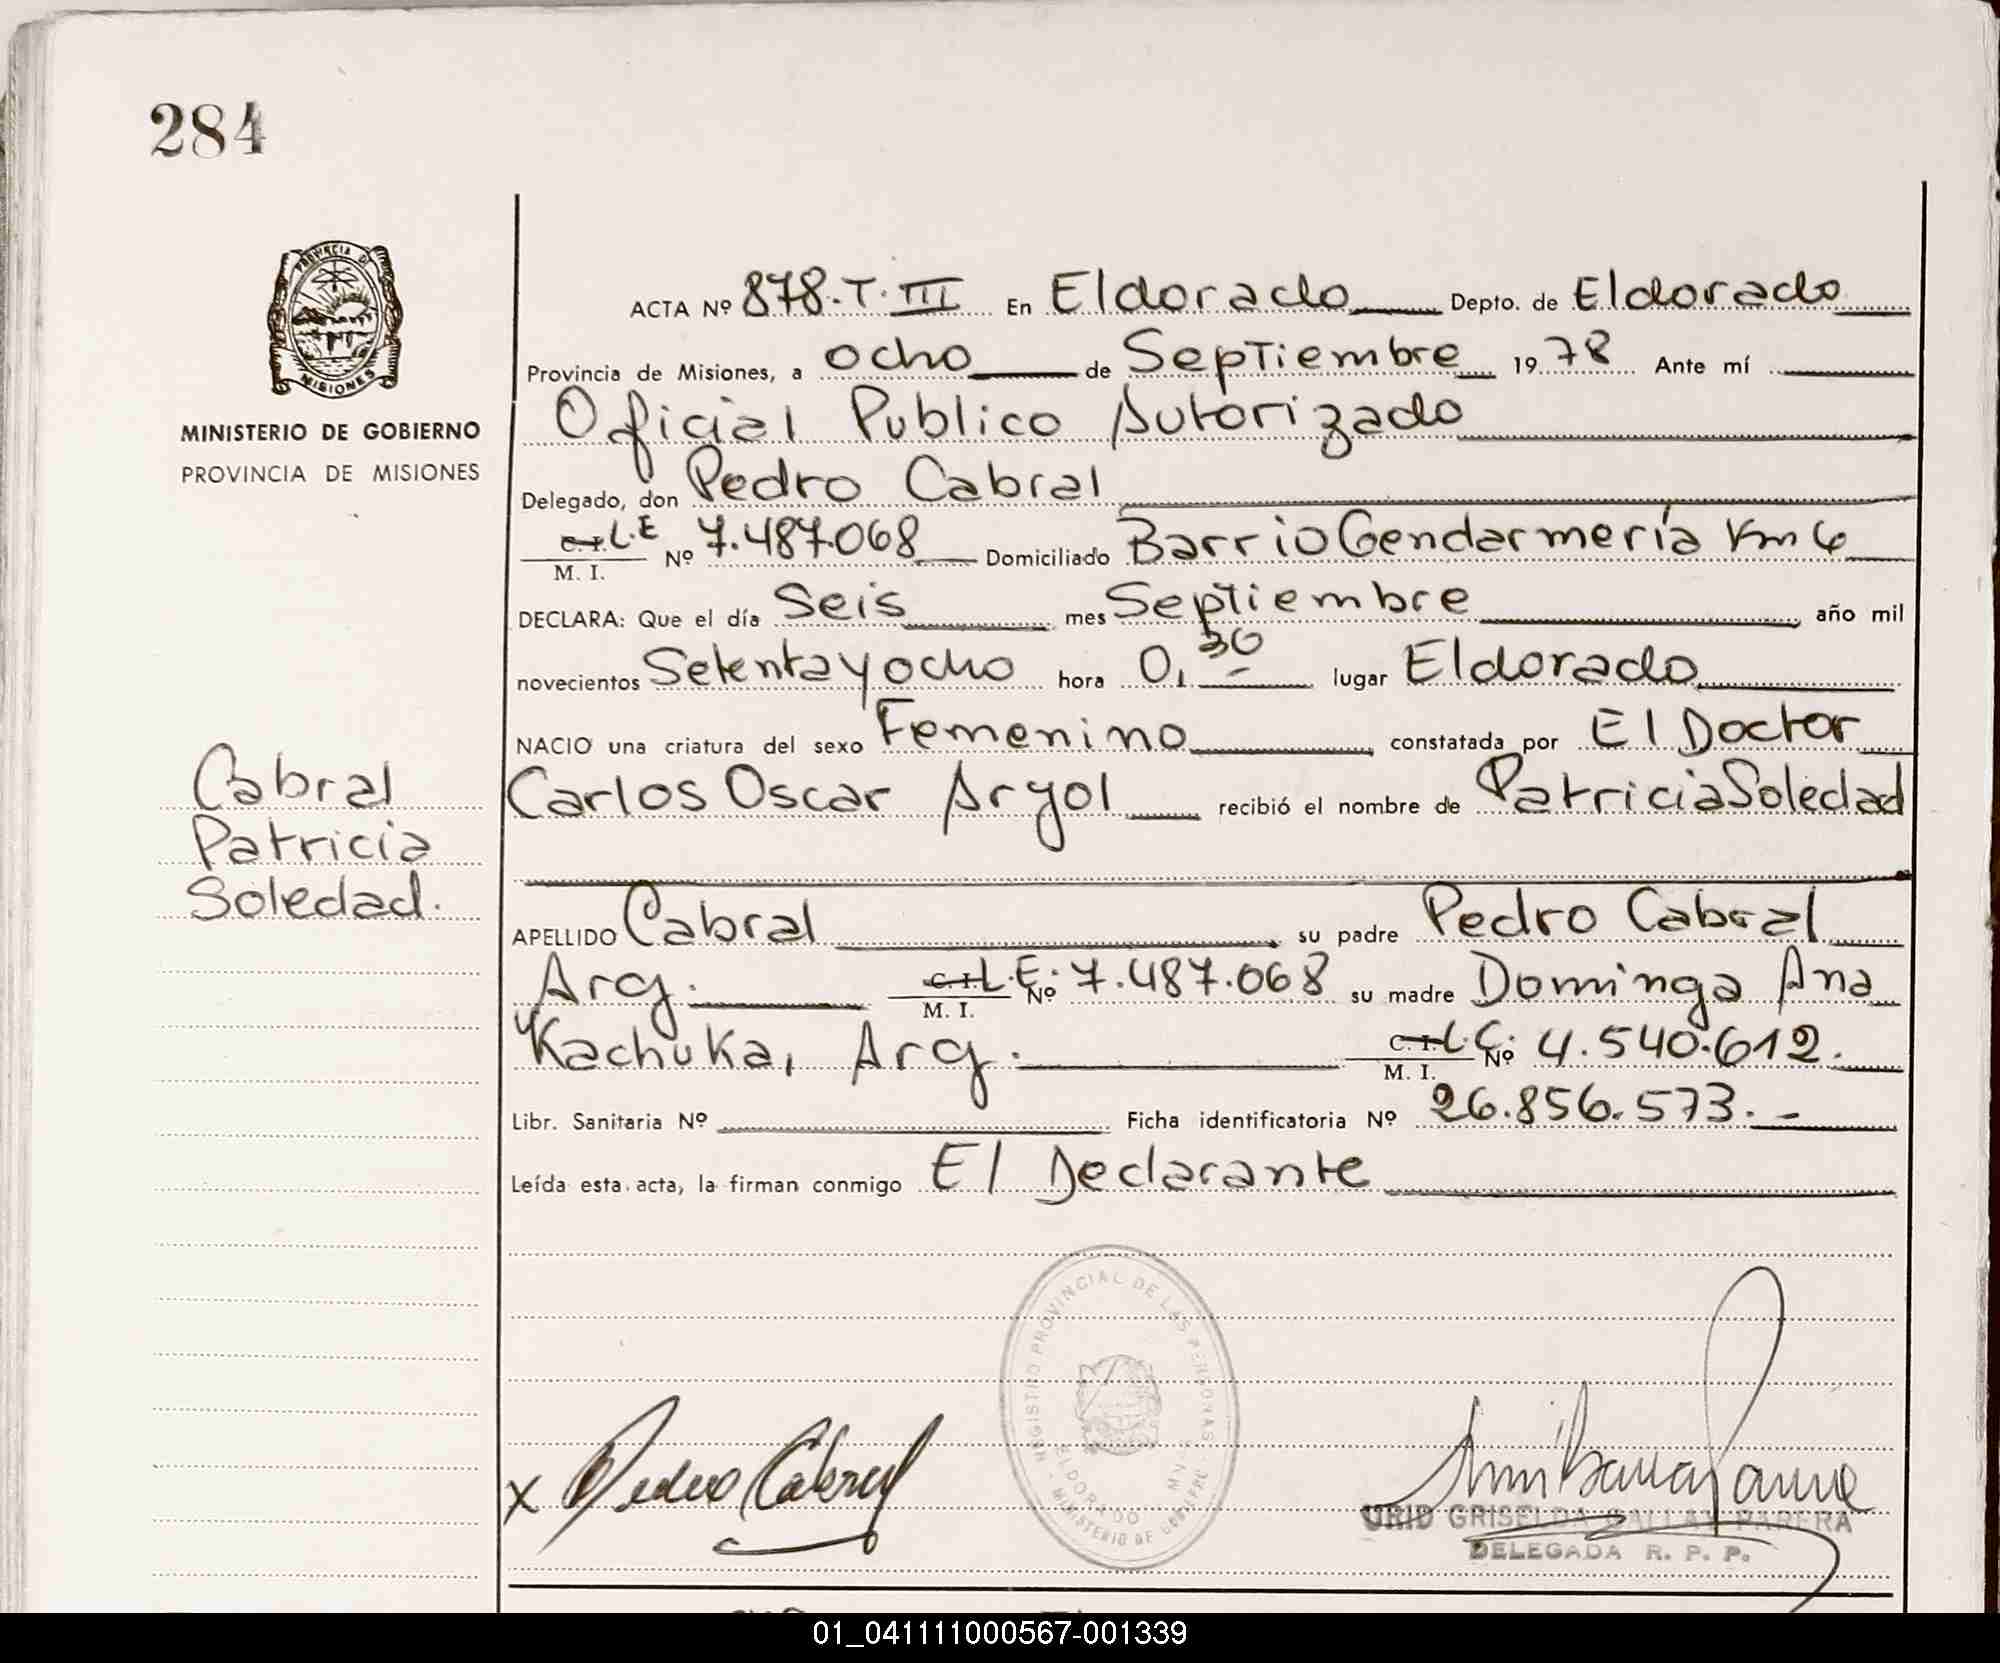 284
PROVINCIA DE
MISIONES
MINISTERIO DE GOBIERNO
PROVINCIA DE MISIONES
Cabral
Patricia
Soledad.
ACTA Nº 878.T.III En Eldorado Depto. de Eldorado
Provincia de Misiones, a ocho de Septiembre 1978 Ante mí
Oficial Publico Autorizado
Delegado, don Pedro Cabral
C.I. L.E Nº 7.487.068 Domiciliado Barrio Gendarmería Km 6
M. I.
DECLARA: Que el día Seis mes Septiembre año mil
novecientos Setenta y ocho hora 0,30 lugar Eldorado
NACIO una criatura del sexo Femenino constatada por El Doctor
Carlos Oscar Aryol recibió el nombre de Patricia Soledad
APELLIDO Cabral su padre Pedro Cabral
Arg. C.I. L.E. Nº 7.487.068 su madre Dominga Ana
M. I.
Kachuka, Arg. C.I. L.C. Nº 4.540.612.
M. I.
Libr. Sanitaria Nº Ficha identificatoria Nº 26.856.573.-
Leída esta acta, la firman conmigo El Declarante
REGISTRO PROVINCIAL DE LAS PERSONAS
ELDORADO MNES
MINISTERIO DE GOBIERNO
x Pedro Cabral
GRISELDA PARERA
DELEGADA R. P. P.
01_041111000567-001339